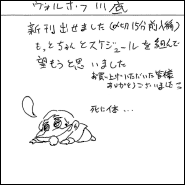 ヴォルホフ川底
新刊出せました(〆切15分前入稿)
もっとちゃんとスケジュールを組んで
望もうと思いました
お買い上げいただいた皆様
ありがとうございました
死に体…